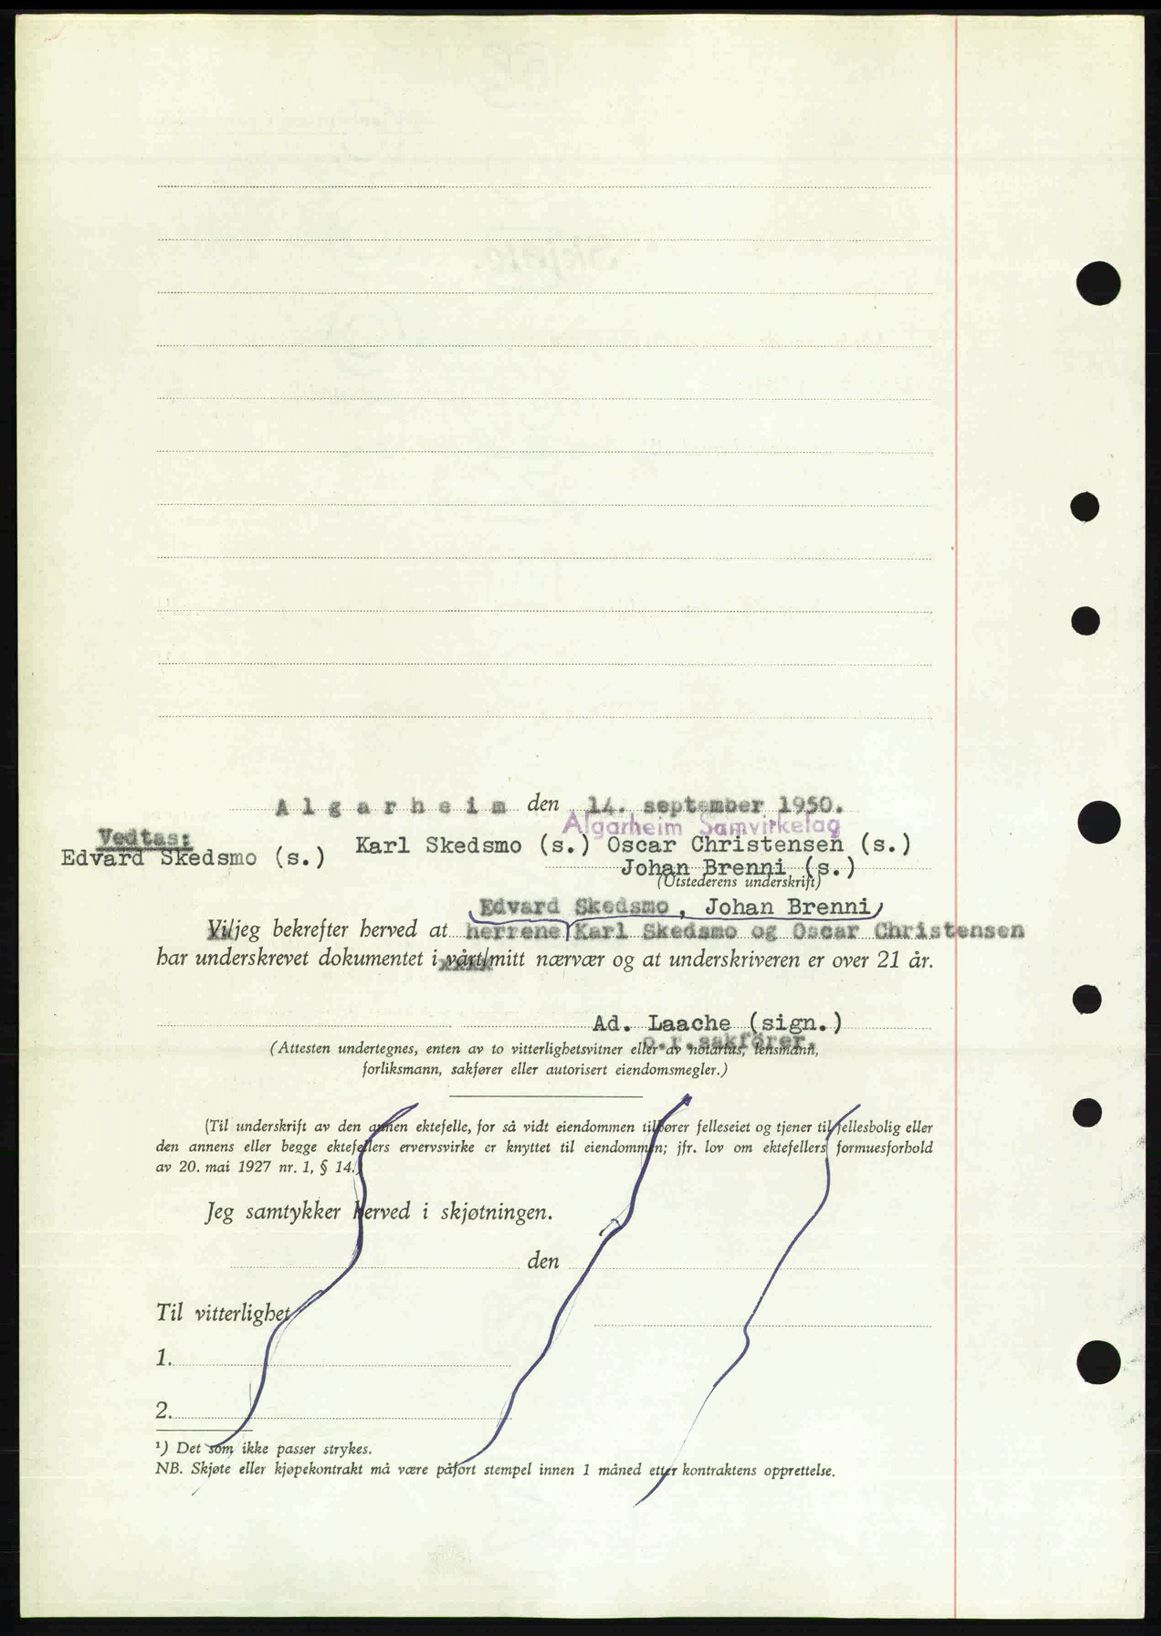 Algarheim den 14. september 1950.
Algarheim Samvirkelag
Vedtas:
Edvard Skedsmo (s.) Karl Skedsmo (s.) Oscar Christensen (s.)
Johan Brenni (s.)
(Utstederens underskrift)
Edvard Skedsmo, Johan Brenni,
Vi/jeg bekrefter herved at herrene Karl Skedsmo og Oscar Christensen
har underskrevet dokumentet i vårt/mitt nærvær og at underskriveren er over 21 år.
Ad. Laache (sign.)
o.r.sakfører.
(Attesten undertegnes, enten av to vitterlighetsvitner eller av notarius, lensmann,
forliksmann, sakfører eller autorisert eiendomsmegler.)
(Til underskrift av den annen ektefelle, for så vidt eiendommen tilhører felleseiet og tjener til fellesbolig eller
den annens eller begge ektefellers ervervsvirke er knyttet til eiendommen; jfr. lov om ektefellers formuesforhold
av 20. mai 1927 nr. 1, § 14.)
Jeg samtykker herved i skjøtningen.
den
Til vitterlighet
1.
2.
¹) Det som ikke passer strykes.
NB. Skjøte eller kjøpekontrakt må være påført stempel innen 1 måned etter kontraktens opprettelse.